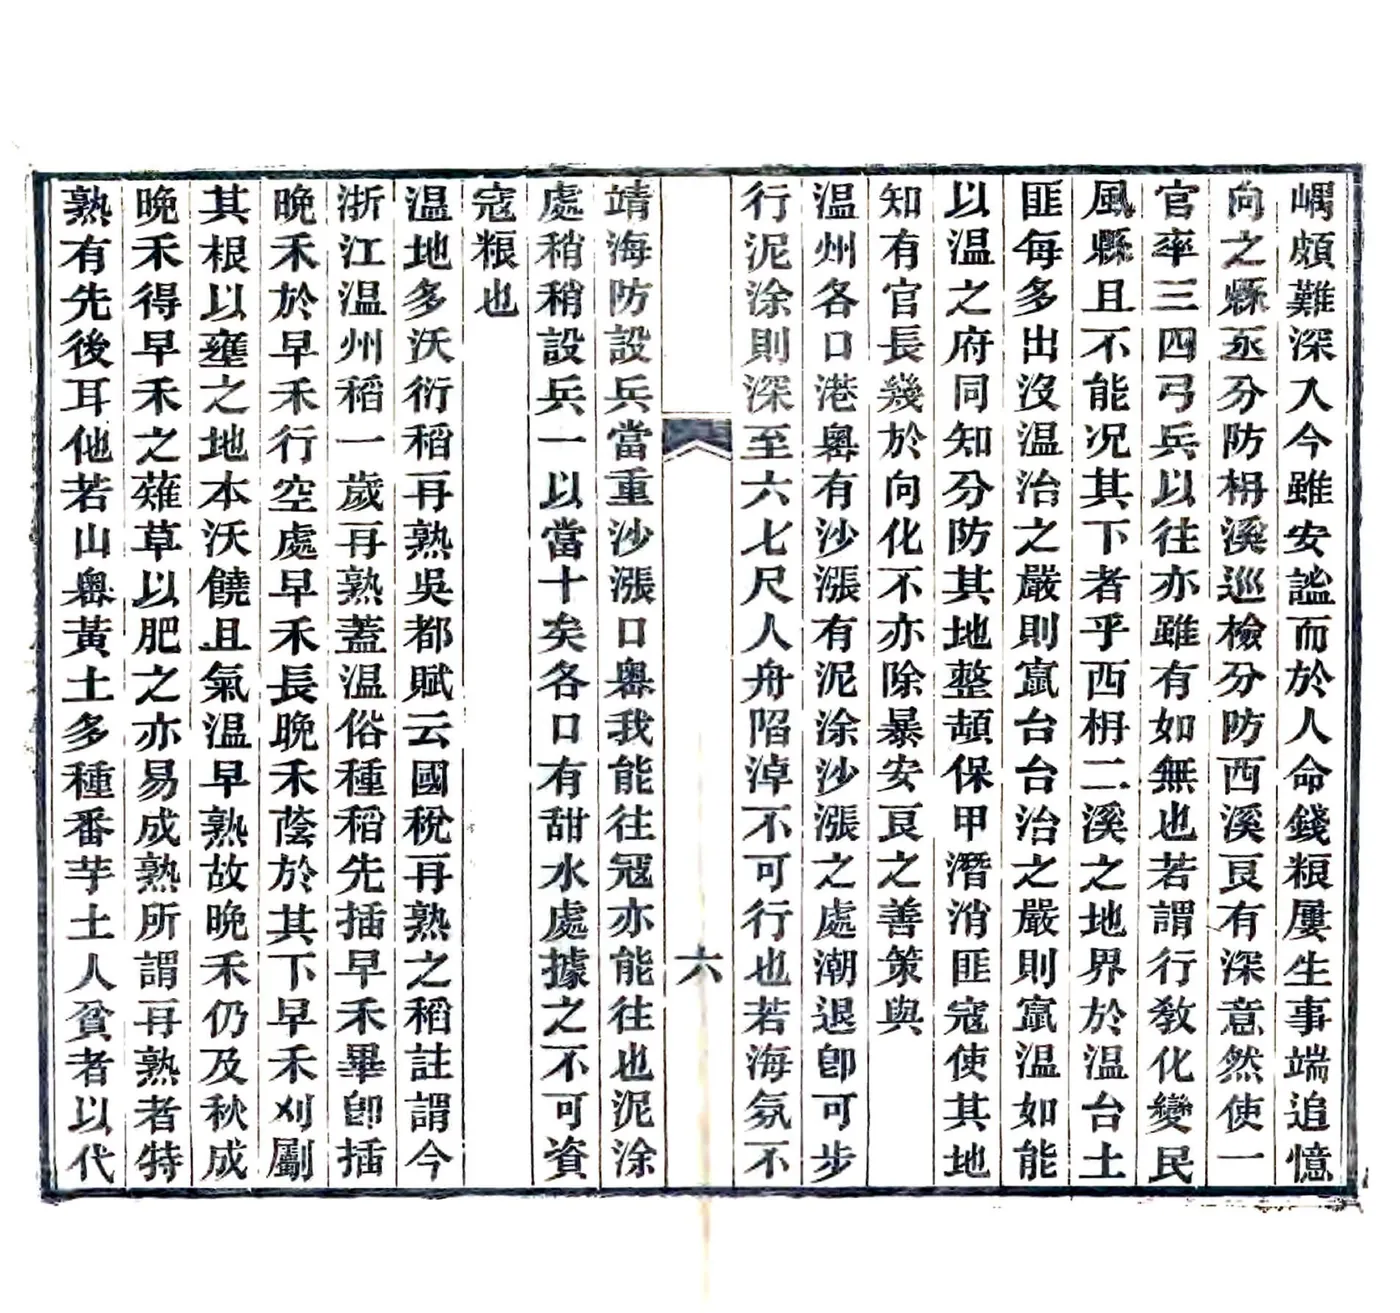 嵎頗難深入今雖安謐而於人命錢粮屢生事端追憶
向之縣丞分防枬溪巡檢分防西溪良有深意然使一
官率三四弓兵以往亦雖有如無也若謂行教化變民
風縣且不能况其下者乎西枬二溪之地界於温台土
匪每多出沒温治之嚴則竄台台治之嚴則竄温如能
以温之府同知分防其地整頓保甲潛消匪寇使其地
知有官長幾於向化不亦除暴安良之善策與
温州各口港粵有沙漲有泥涂沙漲之處潮退卽可步
行泥涂則深至六七尺人舟陷淖不可行也若海氛不
六
靖海防設兵當重沙漲口粵我能往冦亦能往也泥涂
處稍稍設兵一以當十矣各口有甜水處據之不可資
寇粮也
温地多沃衍稻再熟吳都賦云國稅再熟之稻註謂今
浙江温州稻一歲再熟蓋温俗種稻先插早禾畢卽插
晚禾於早禾行空處早禾長晚禾蔭於其下早禾刈劚
其根以壅之地本沃饒且氣温早熟故晚禾仍及秋成
晚禾得早禾之薙草以肥之亦易成熟所謂再熟者特
熟有先後耳他若山粵黃土多種番芋土人貧者以代